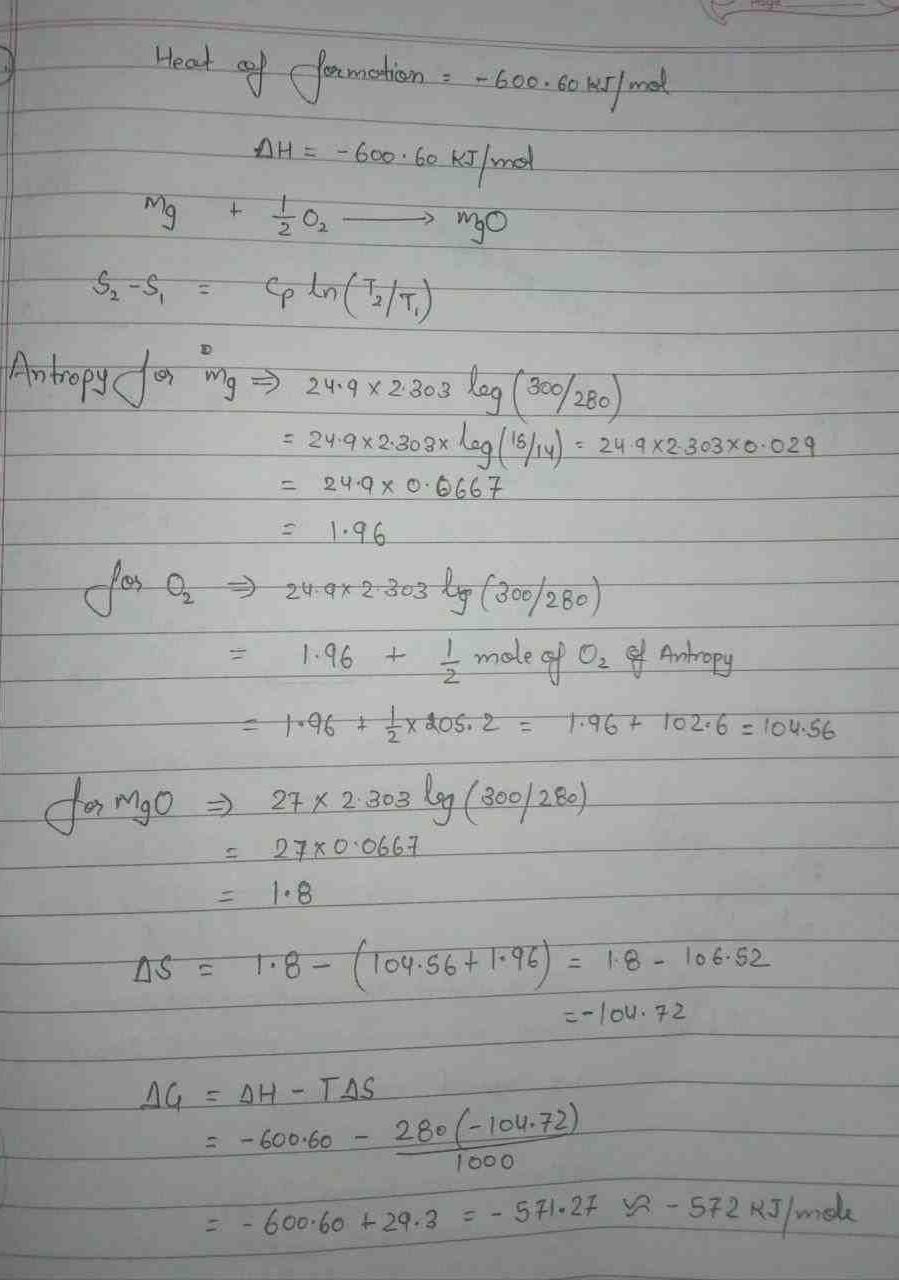 Page
Heat of formation = -600.60 KJ/mol
ΔH = -600.60 KJ/mol
Mg + 1/2 O₂ ⟶ MgO
S₂-S₁ = Cp ln(T₂/T₁)
Antropy for Mg ⇒ 24.9 x 2.303 log (300/280)
= 24.9 x 2.303 x log (15/14) = 24.9 x 2.303 x 0.029
= 24.9 x 0.0667
= 1.96
for O₂ ⇒ 24.9 x 2.303 log (300/280)
= 1.96 + 1/2 mole of O₂ of Antropy
= 1.96 + 1/2 x 205.2 = 1.96 + 102.6 = 104.56
for MgO ⇒ 27 x 2.303 log (300/280)
= 27 x 0.0667
= 1.8
ΔS = 1.8 - (104.56 + 1.96) = 1.8 - 106.52
= -104.72
ΔG = ΔH - TΔS
= -600.60 - 280(-104.72)/1000
= -600.60 + 29.3 = -571.27 ≈ -572 KJ/mole